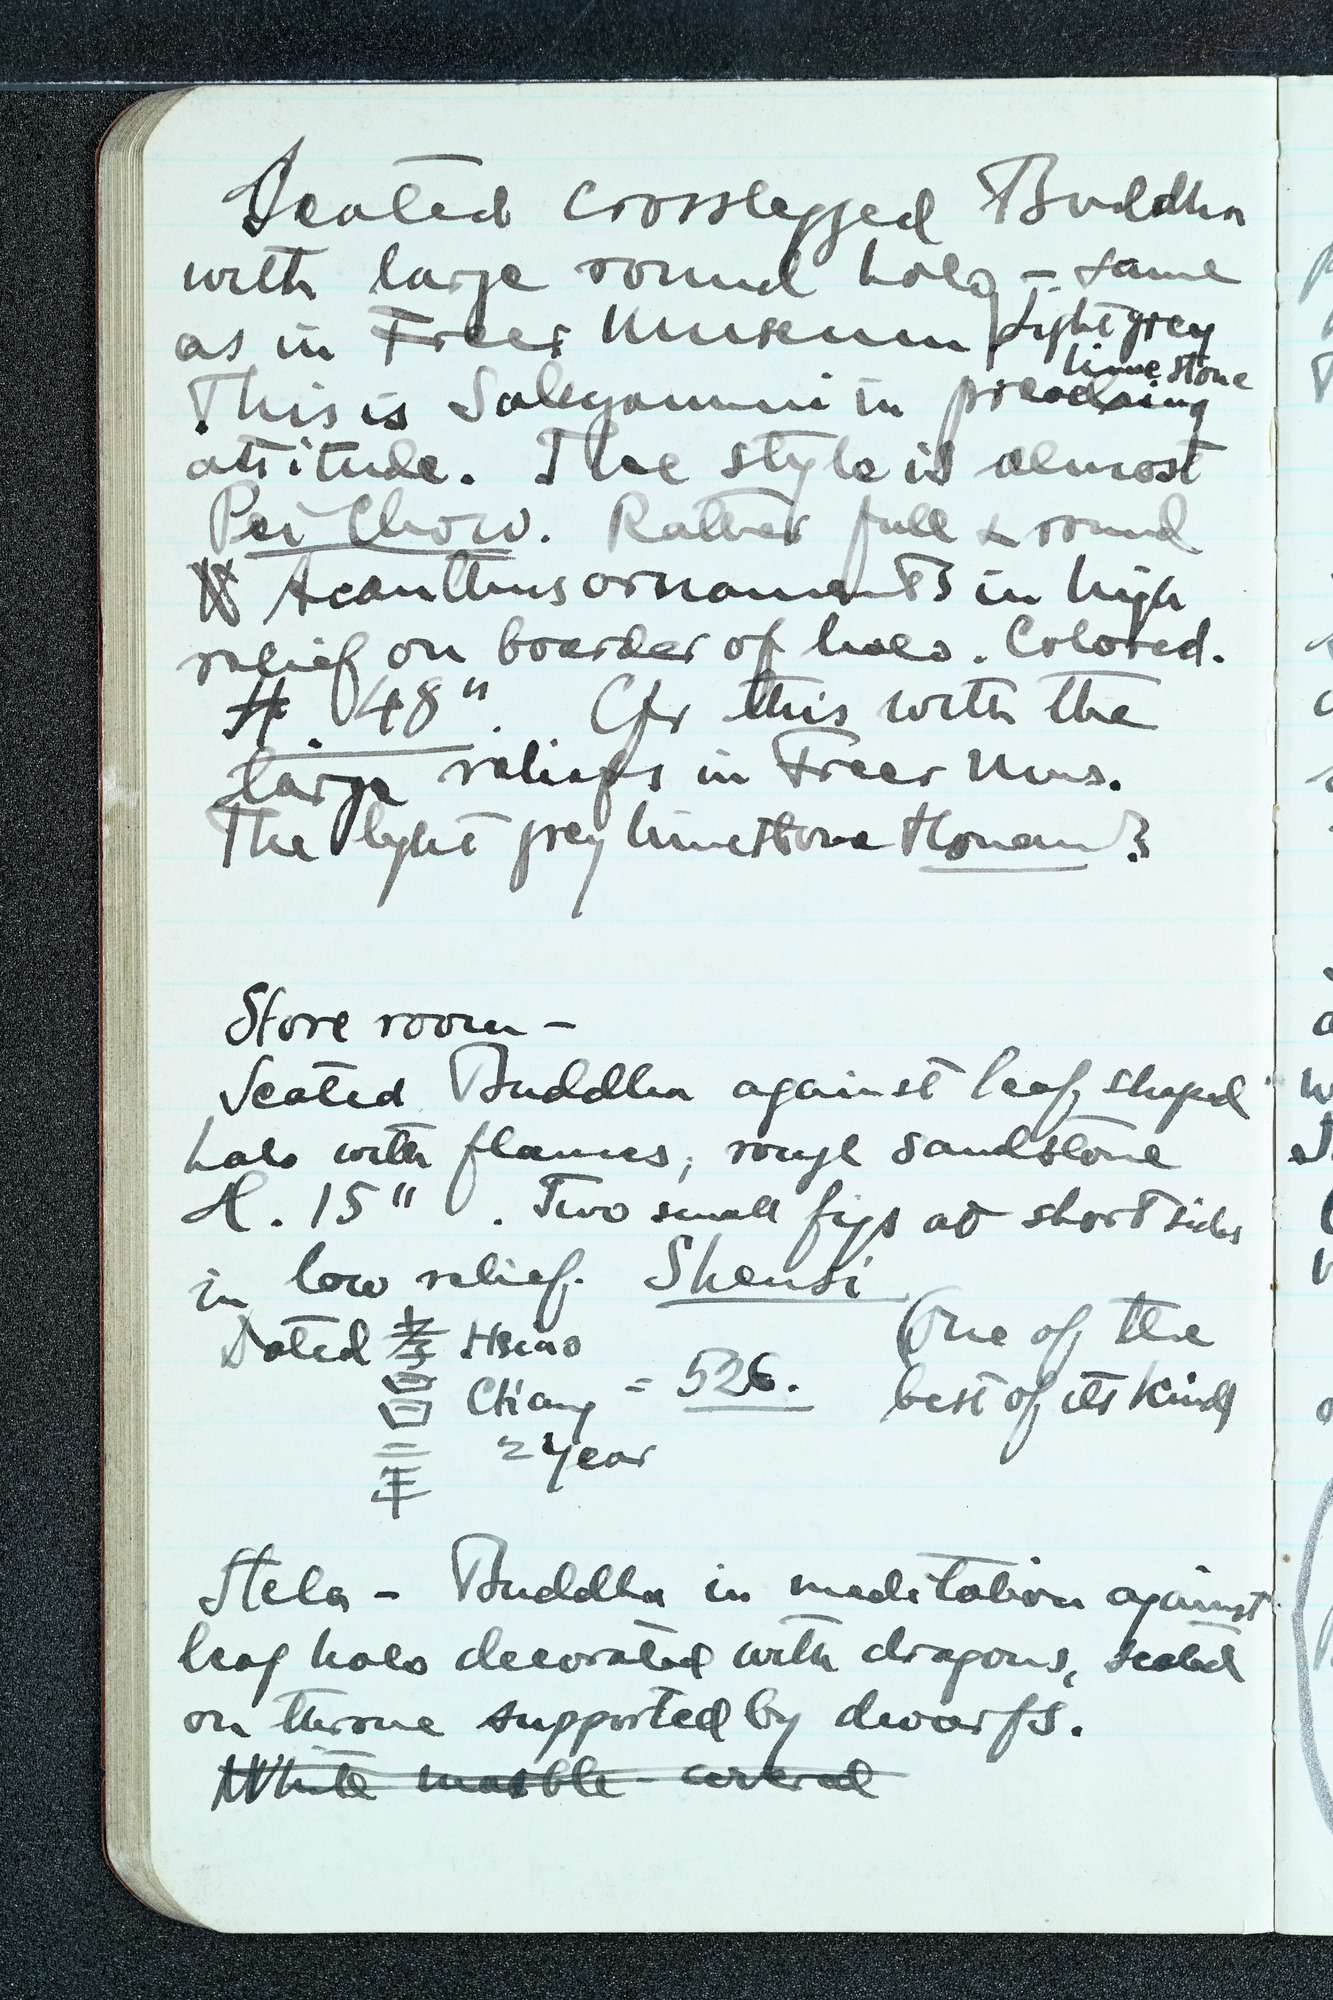 Seated crosslegged Buddha
with large round halo – same
as in Freer Museum Light grey
limestone
This is Sakyamuni in preaching
attitude. The style is almost
Pei Chow. Rather full & round
Acanthus ornaments in high
relief on boarder of halo. Colored.
H. 48". Cfr this with the
large reliefs in Freer Mus.
The light grey limestone Honan?
Store room –
Seated Buddha against leaf shaped
halo with flames, rough sandstone
H. 15". Two small figs at short sides
in low relief. Shensi
Dated 孝 Hsiao One of the
昌 Ch'ang = 526. best of its kind
二 2 year
年
Stela – Buddha in meditation against
leaf halo decorated with dragons, seated
on throne supported by dwarfs.
White marble - covered